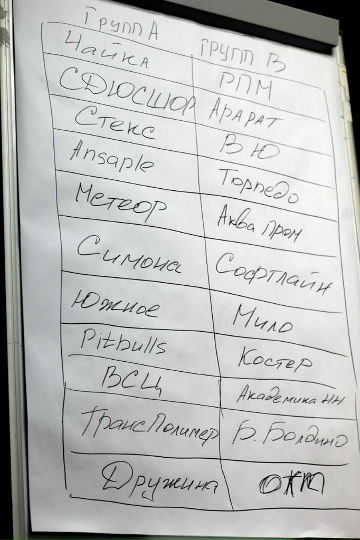 Групп А Групп В
Чайка РПМ
СДЮСШОР Арарат
Стекс ВЮ
Ansaple Торпедо
Метеор Аква Пром
Симона Софтлайн
Южное Мило
Pitbulls Костер
ВСЦ Академика НН
ТрансПолимер Б. Болдино
Дружина ОКТ